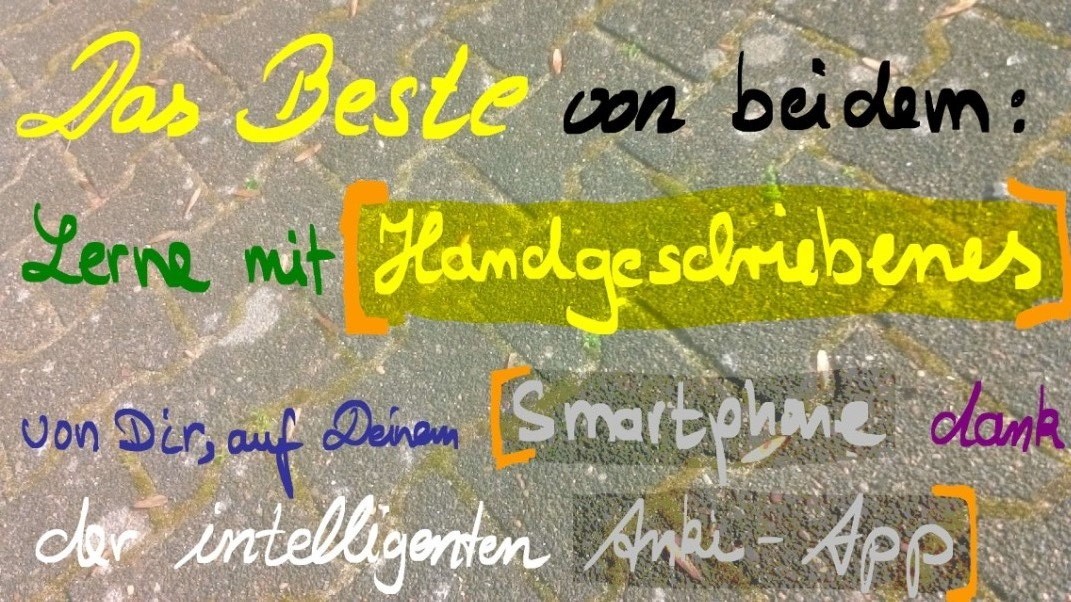 Das Beste von beidem:
Lerne mit [Handgeschriebenes]
von Dir, auf Deinem [Smartphone dank
der intelligenten Anki-App]